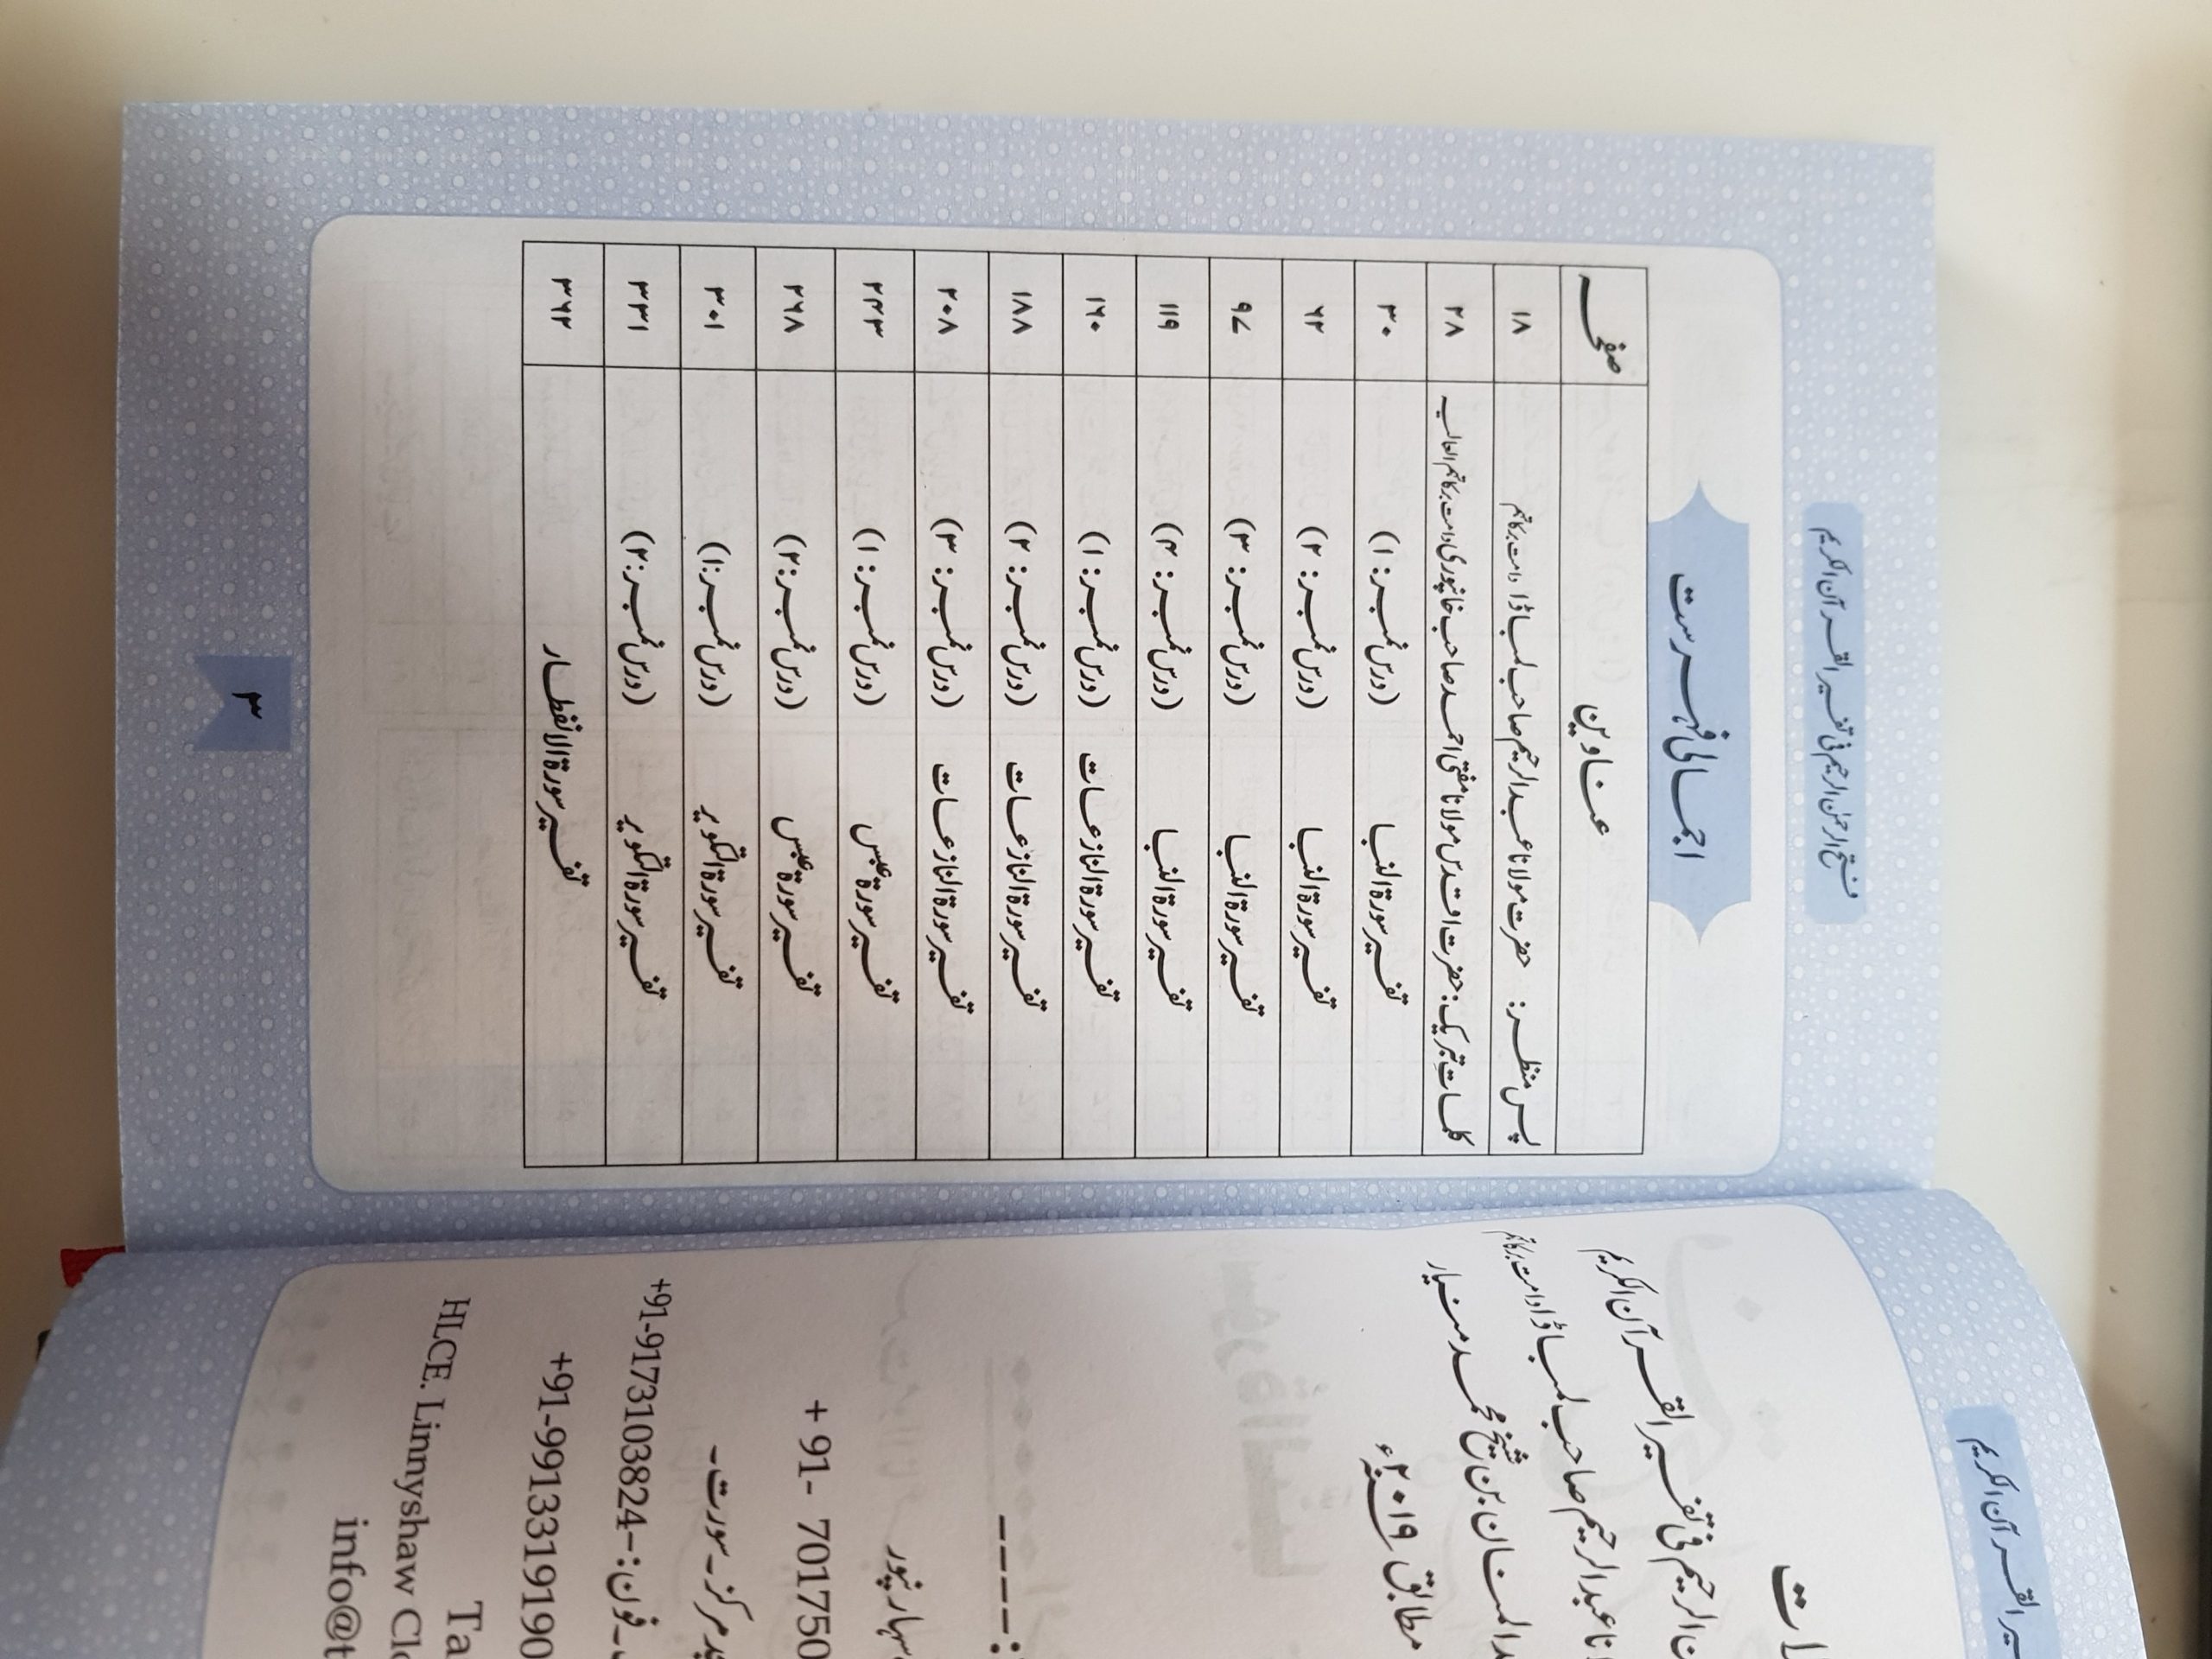 فتح الرحمٰن الرحیم فی تفسیر القرآن الکریم
اجمالی فہرست
عناوین صفحہ
پس منظر: حضرت مولانا عبدالرحیم صاحب لمباڈا دامت برکاتہم ۱۸
کلمات تبریک: حضرت اقدس مولانا مفتی احمد صاحب خانپوری دامت برکاتہم العالیہ ۲۸
تفسیر سورۃ النبا (درس نمبر: ۱) ۳۰
تفسیر سورۃ النبا (درس نمبر: ۲) ۶۲
تفسیر سورۃ النبا (درس نمبر: ۳) ۹۷
تفسیر سورۃ النبا (درس نمبر: ۴) ۱۱۹
تفسیر سورۃ النازعات (درس نمبر: ۱) ۱۶۰
تفسیر سورۃ النازعات (درس نمبر: ۲) ۱۸۸
تفسیر سورۃ النازعات (درس نمبر: ۳) ۲۰۸
تفسیر سورۃ عبس (درس نمبر: ۱) ۲۴۳
تفسیر سورۃ عبس (درس نمبر: ۲) ۲۶۸
تفسیر سورۃ التکویر (درس نمبر: ۱) ۳۰۱
تفسیر سورۃ التکویر (درس نمبر: ۲) ۳۳۱
تفسیر سورۃ الانفطار ۳۶۲
۳
القرآن الکریم
الرحیم فی تفسیر القرآن الکریم
عبدالرحیم صاحب لمباڈا دامت برکاتہم
المنان بن شیخ محمد منیار
مطابق ۲۰۱۹ء
----:
سہارنپور
+ 91- 701750
مرکز۔سورت۔
فون:-91731038824-+91
+91-9913319190
Ta
HLCE. Linnyshaw Clo
info@t